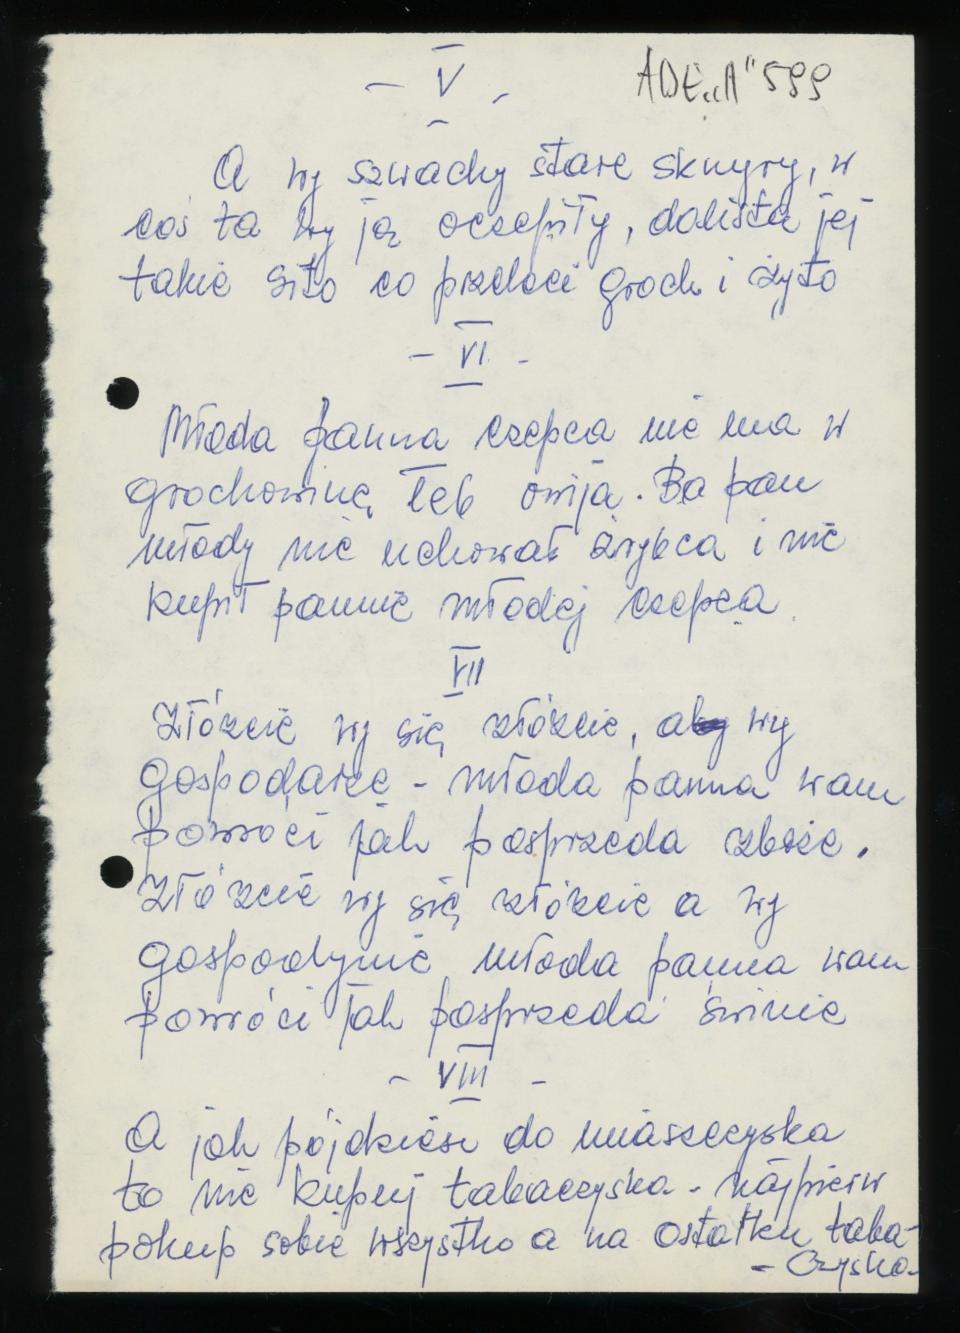 - V -
ADE „A" 599
A wy szwachy stare sknyry, w
coś ta wy ją oczepiły, daliśta jej
takie sito co przeleci groch i żyto
- VI -
Młoda panna czepca nie ma w
grochowinę łeb owija. Ba pan
młody nie uchował źrybca i nie
kupił pannie młodej czepca
VII
Złóżcie wy się złóżcie, a wy
gospodarze - młoda panna wam
powróci jak posprzeda zboże.
Złóżcie wy się złóżcie a wy
gospodynie młoda panna wam
powróci jak posprzeda świnie
- VIII -
A jak pójdziesz do miaszczyska
to nie kupuj tabaczyska - nájpierw
pokup sobie wszystko a na ostatku taba-
- czyska -